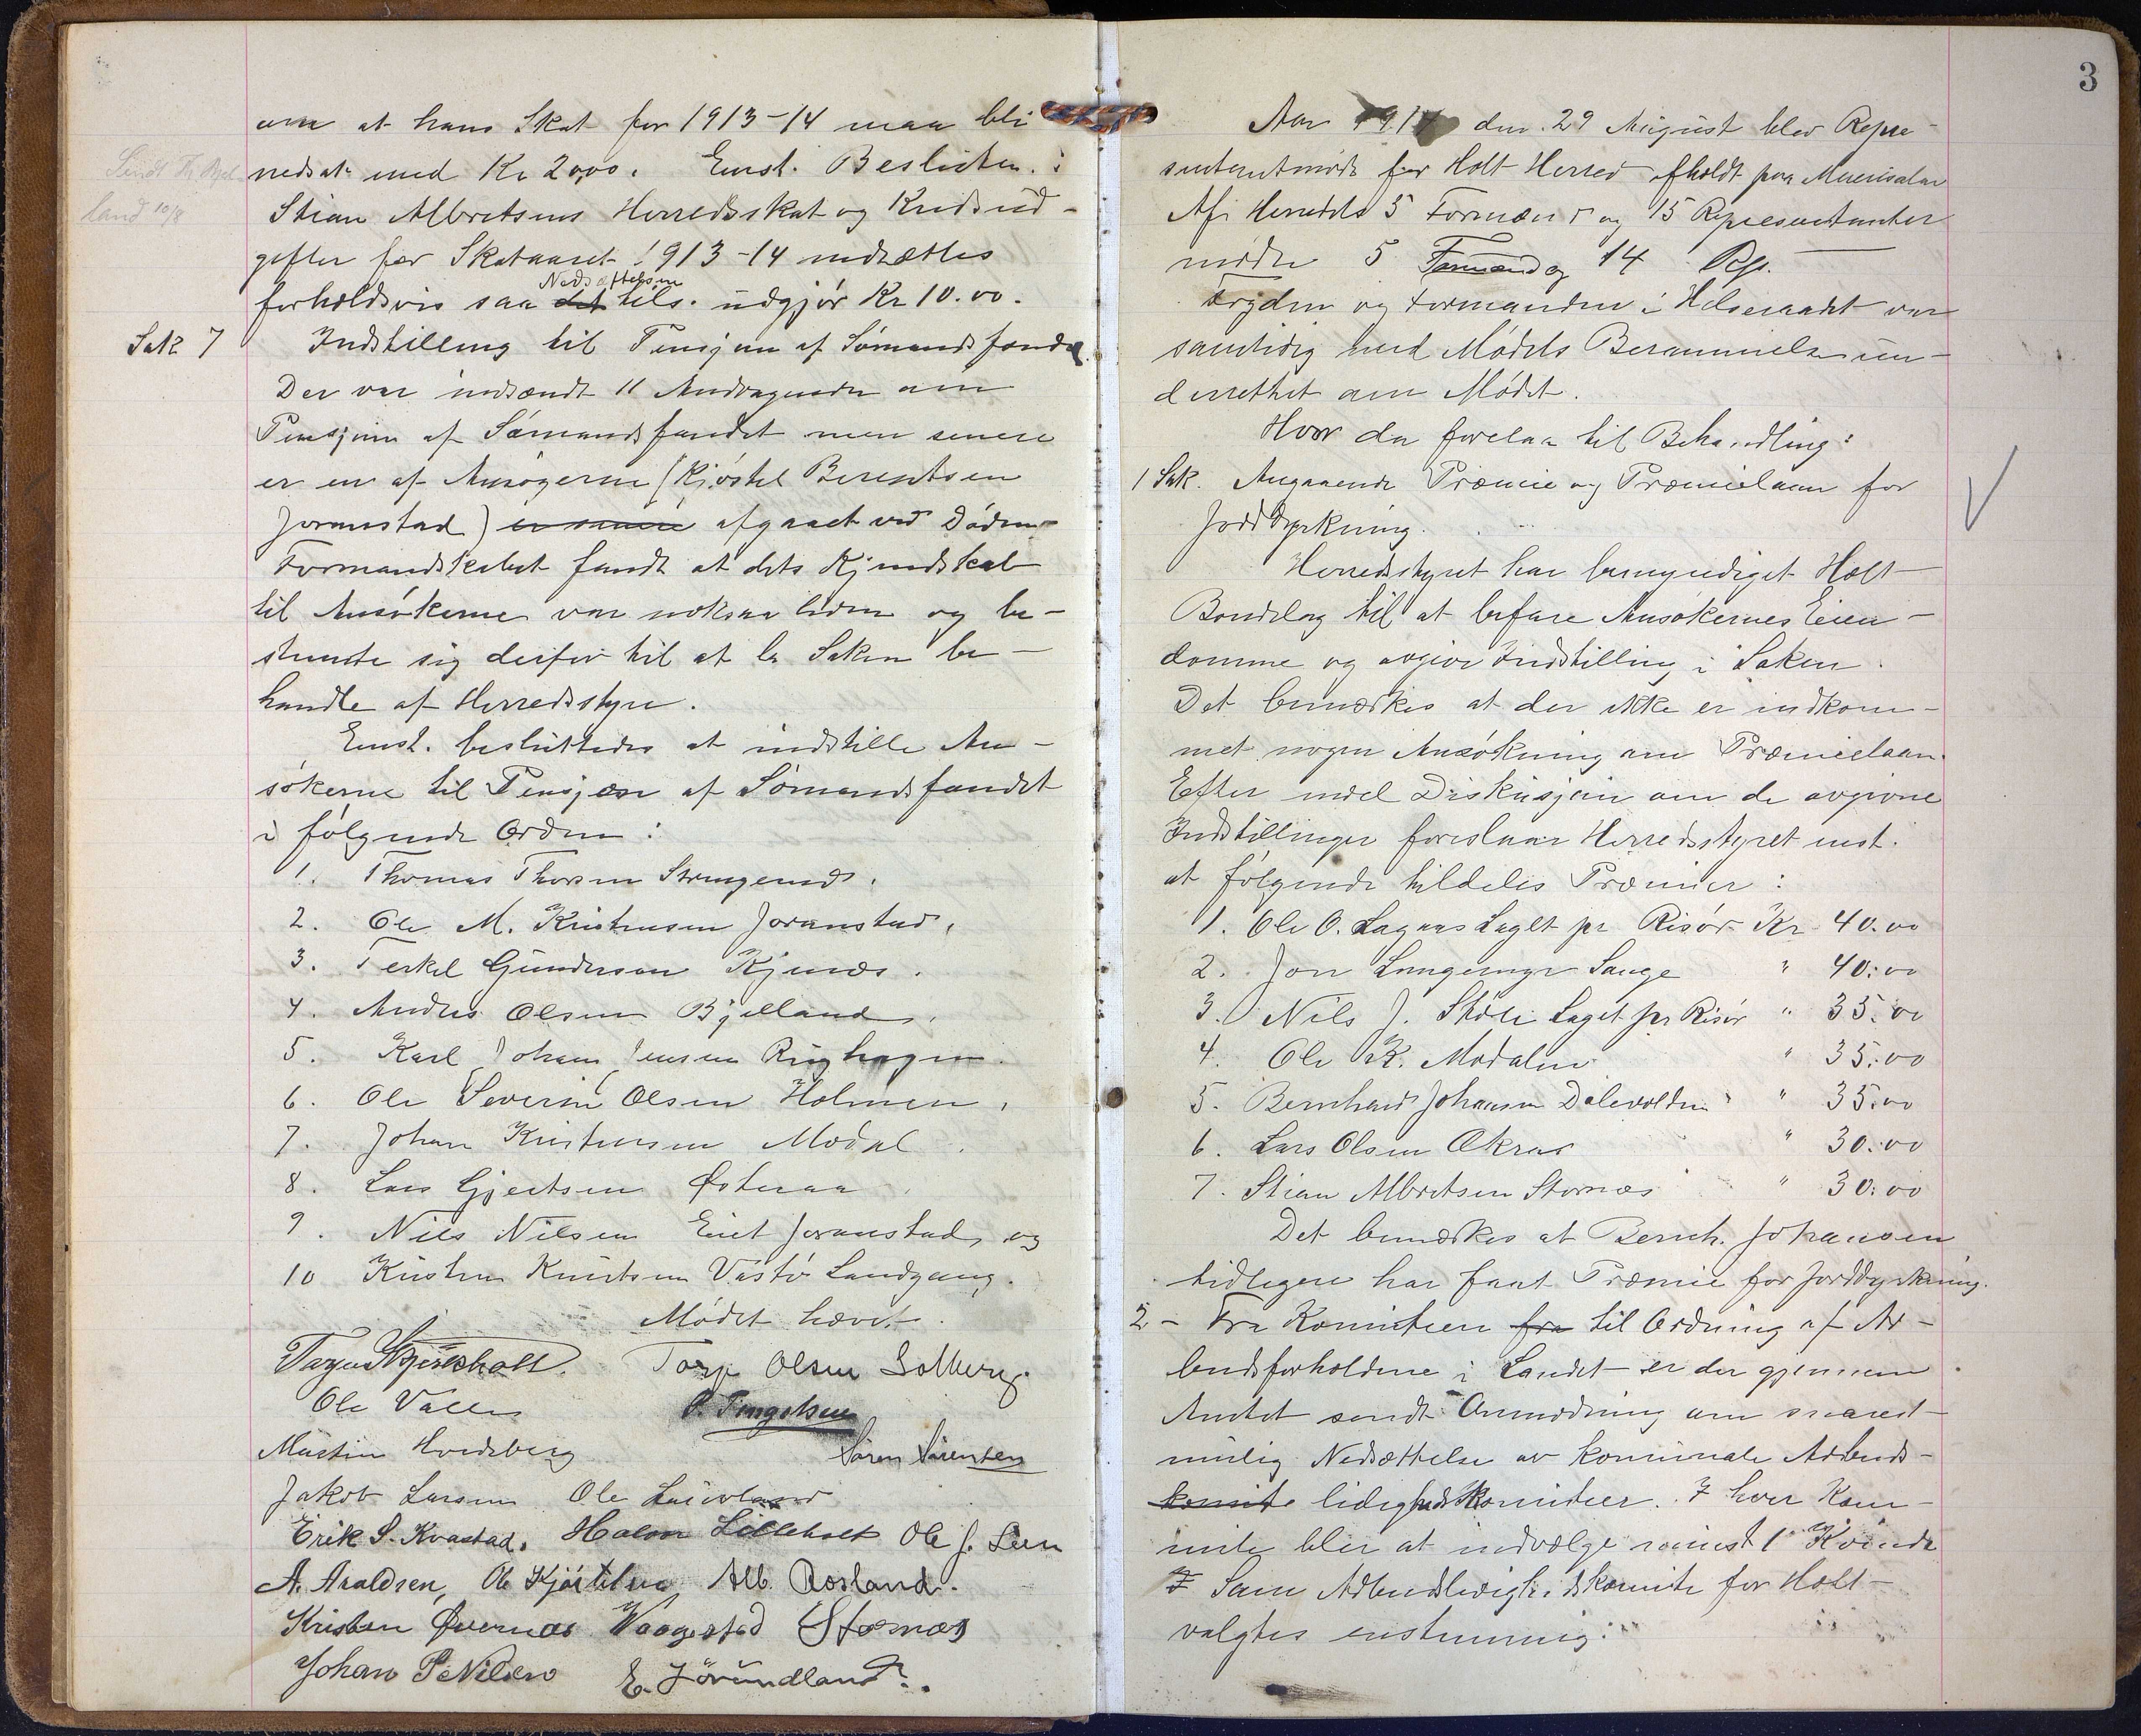 om at hans Skat for 1913-14 maa bli
nedsat med Kr 20,00. Enst. Besluten:
Stian Albretsens Herredsskat og Kredsud-
gifter for Skataaret 1913-14 nedsættes
Nedsættelsen
forholdsvis saa det tils. udgjør Kr 10.00.
Sendt Th. Bjel
land 10/8
Sak 7
Indstilling til Pensjon af Sømandsfondet.
Der var indsændt 11 Andragender om
Pensjon af Sømandsfondet men senere
er en af Ansøgerne (Kjøstel Berentsen
Joranstad) er senere afgaaet ved Døden.
Formandskabet fandt at dets Kjendskab
til Ansøkerne var noksaa liden og be-
stemte sig derfor til at la Saken be-
handle af Herredsstyre.
Enst. besluttedes at indstille An-
søkerne til Pensjon af Sømandsfondet
i følgende Orden:
1. Thomas Thorsen Strengereid.
2. Ole M. Kristensen Joranstad,
3. Terkel Gundersen Kjenes.
4. Anders Olsen Bjelland,
5. Karl Johan Jensen Ringhagen.
6. Ole Severin Olsen Holmen,
7. Johan Kristensen Modal.
8. Lars Gjertsen Østeraa.
9. Nils Nilsen Eiet Joranstad, og
10 Kristen Knutsen Vastø Landgang.
Mødet hævet.
Tarje Skjerkholt. Torje Olsen Solberg.
Ole Valle P. Tingelsen
Martin Hvedsberg Søren Sørensen
Jakob Larsen Ole Laivoland
Erik S. Kvastad. Halvor Lilleholt Ole J. Lien
A. Araldsen, Ole Kjøstelsen Alb. Rosland.
Kristen Øvernes Vaagestad Stornæs
Johan P Nilsen E. Jørundland.
3
Aar 1914 den 29 August blev Repre-
sentantmøde for Holt Herred afholdt paa Museisalen
Af Herredets 5 Formænd og 15 Representanter
mødte 5 Formænd og 14 Rep.
Fogden og Formanden i Helseraadet var
samtidig med Mødets Berammelse un-
derrettet om Mødet.
Hvor da forelaa til Behandling:
1 Sak. Angaaende Præmie og Præmielaan for
Jorddyrkning.
Herredsstyret har bemyndiget Holt
Bondelag til at befare Ansøkernes Eien-
domme og avgive Indstilling i Saken.
Det bemærkes at der ikke er indkom-
met nogen Ansøkning om Præmielaan.
Efter endel Diskusjon om de avgivne
Indstillinger foreslaar Herredsstyret enst.
at følgende tildeles Præmier:
1. Ole O. Lagaas Laget pr Risør Kr 40.00
2. Jon Lungemyr Sange " 40.00
3. Nils J. Støle Laget pr Risør " 35.00
4. Ole K. Modalen " 35.00
5. Bernhard Johansen Dalevolden " 35.00
6. Lars Olsen Økras " 30.00
7. Stian Albretsen Stornæs " 30.00
Det bemærkes at Bernh. Johansen
tidligere har faat Præmie for Jorddyrkning.
2 - Fra Komiteen fra til Ordning af Ar-
beidsforholdene i Landet er der gjennem
Amtet sendt Anmodning om snarest-
mulig Nedsættelse av komunale Arbeids-
komite lidighedskomiteer. I hver Kom-
mite blir at indvælge mindst 1 Kvinde
I Som Arbeidsledighedskomite for Holt
valgtes enstemmig: